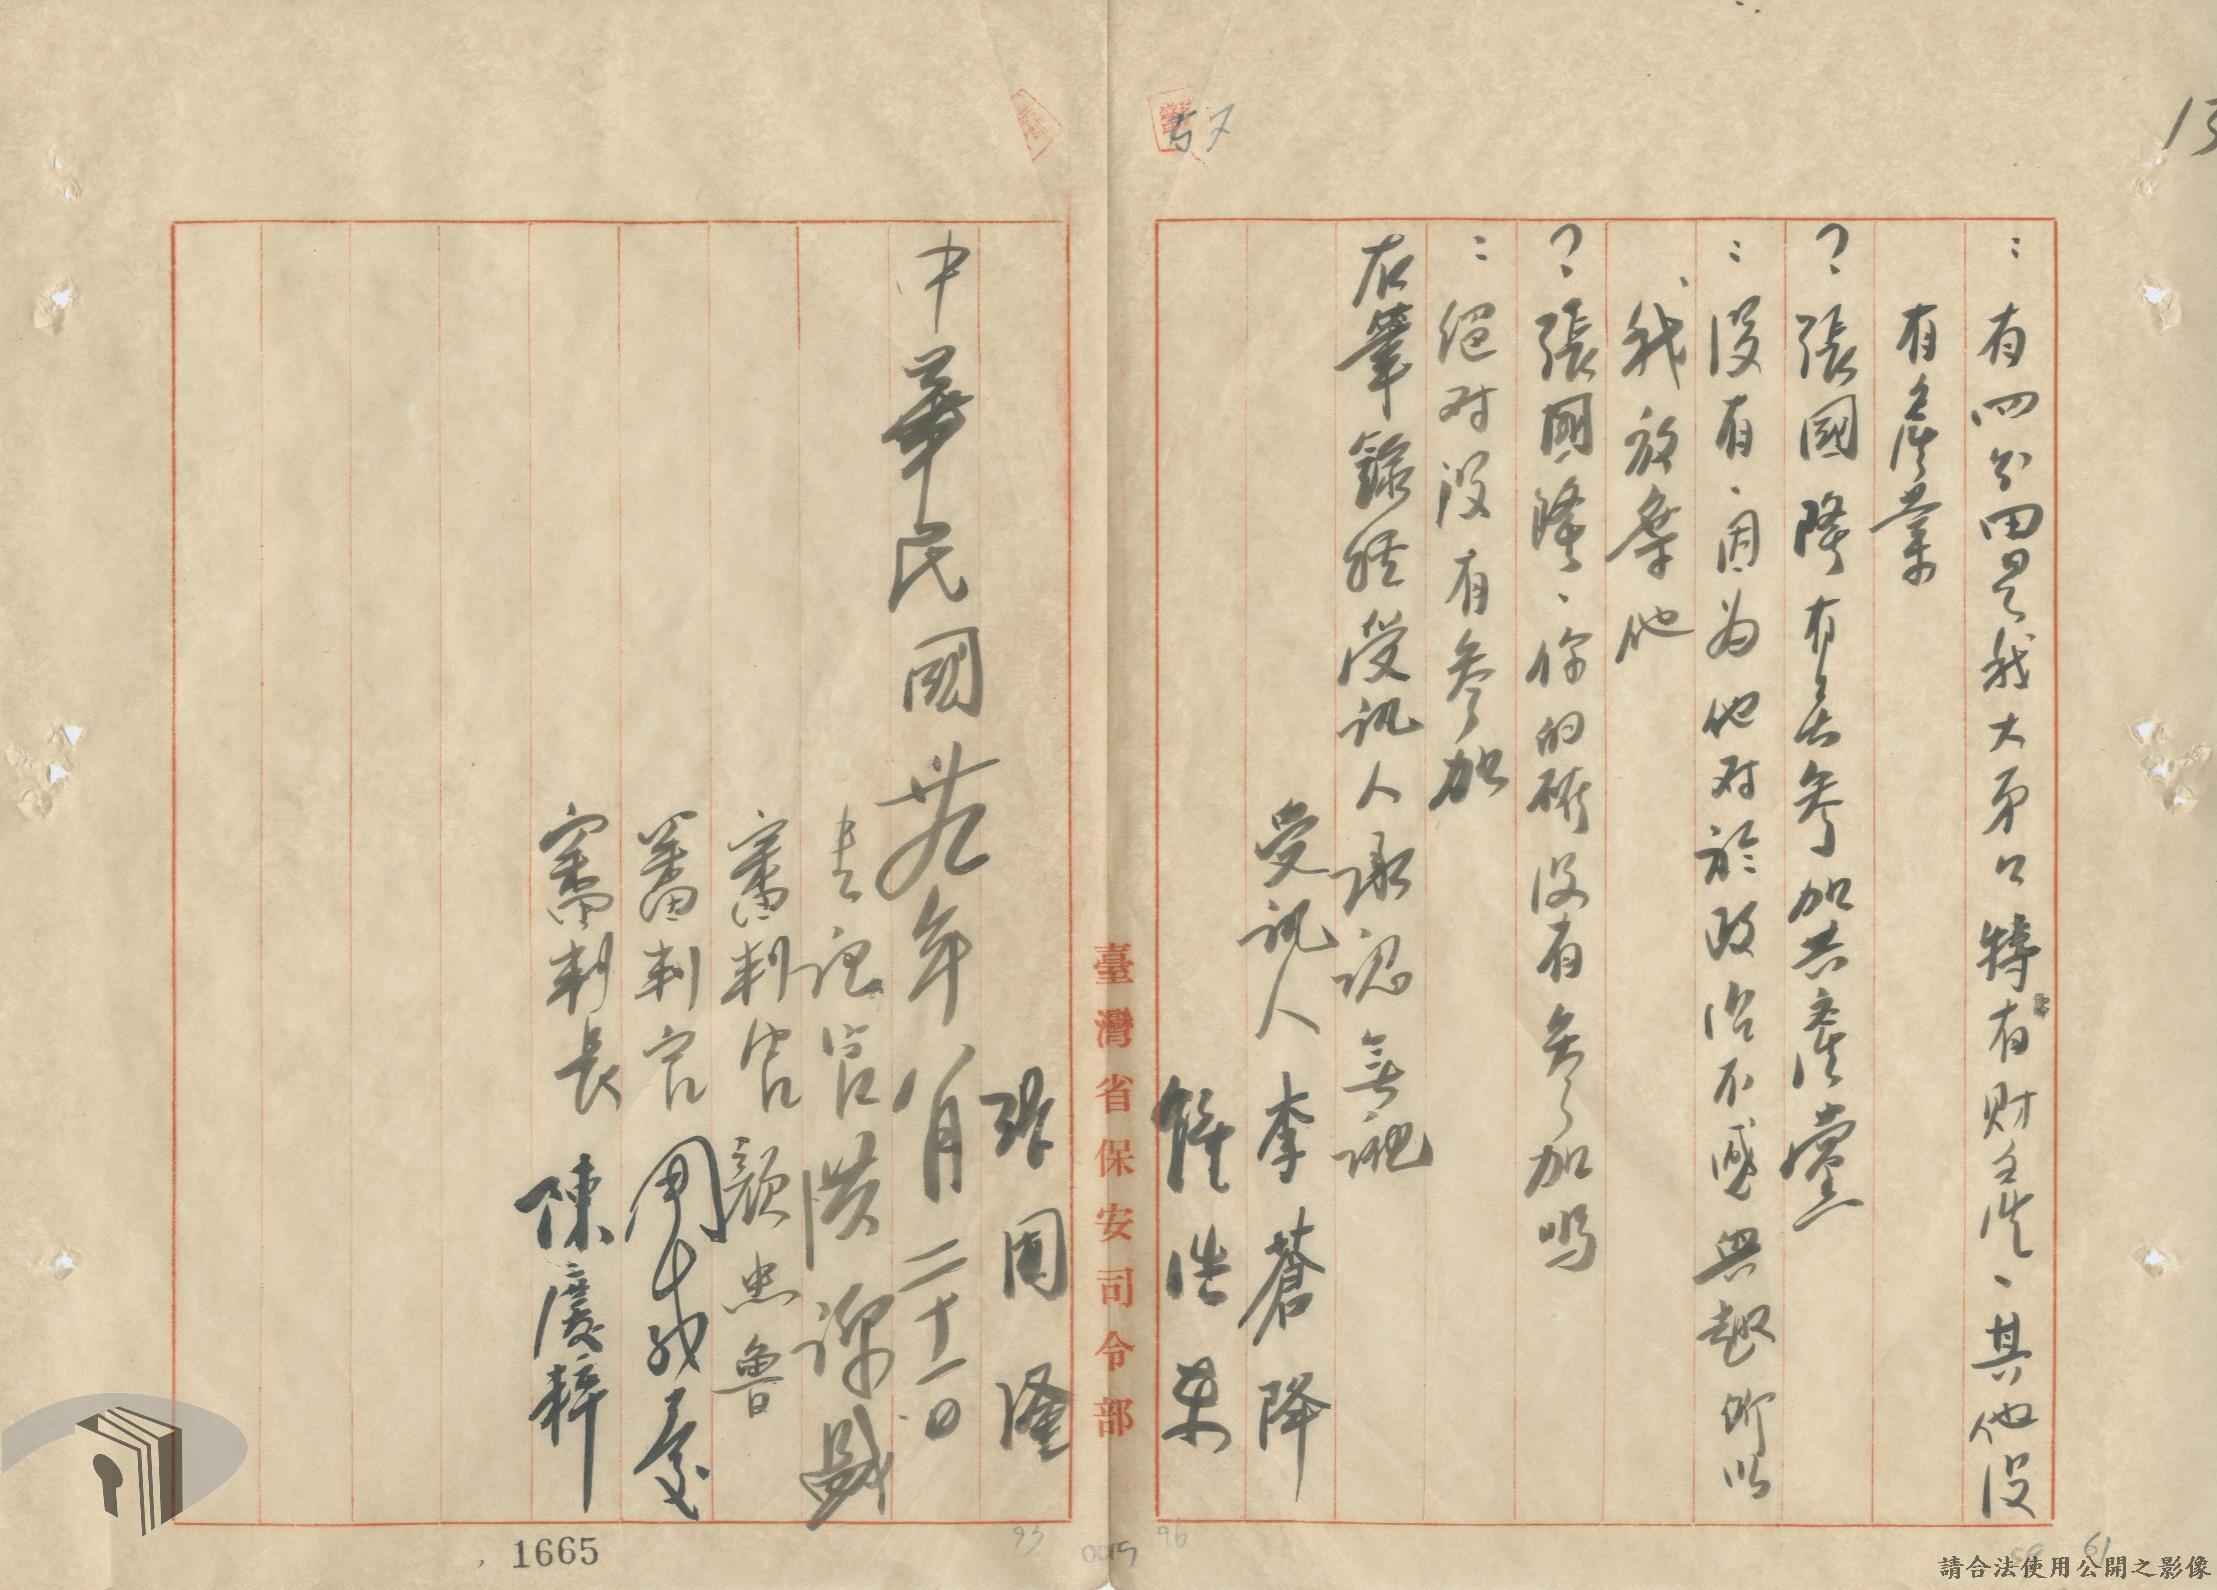 57
13
：有四分田是我大弟口特有財產、其他沒
有產業
？張國隆有無參加共產黨
：沒有、因为他对於政治不感興趣所以
我放棄他
？張國隆、你的確沒有參加嗎
：絕对沒有參加
右筆錄經受訊人承認無訛
受訊人 李蒼降
張國隆
中華民國卅九年八月二十一日
書記官
審判官 顏忠魯
審判官 周咸慶
審判長 陳慶粹
臺灣省保安司令部
1665
95
96
0019
61
請合法使用公開之影像